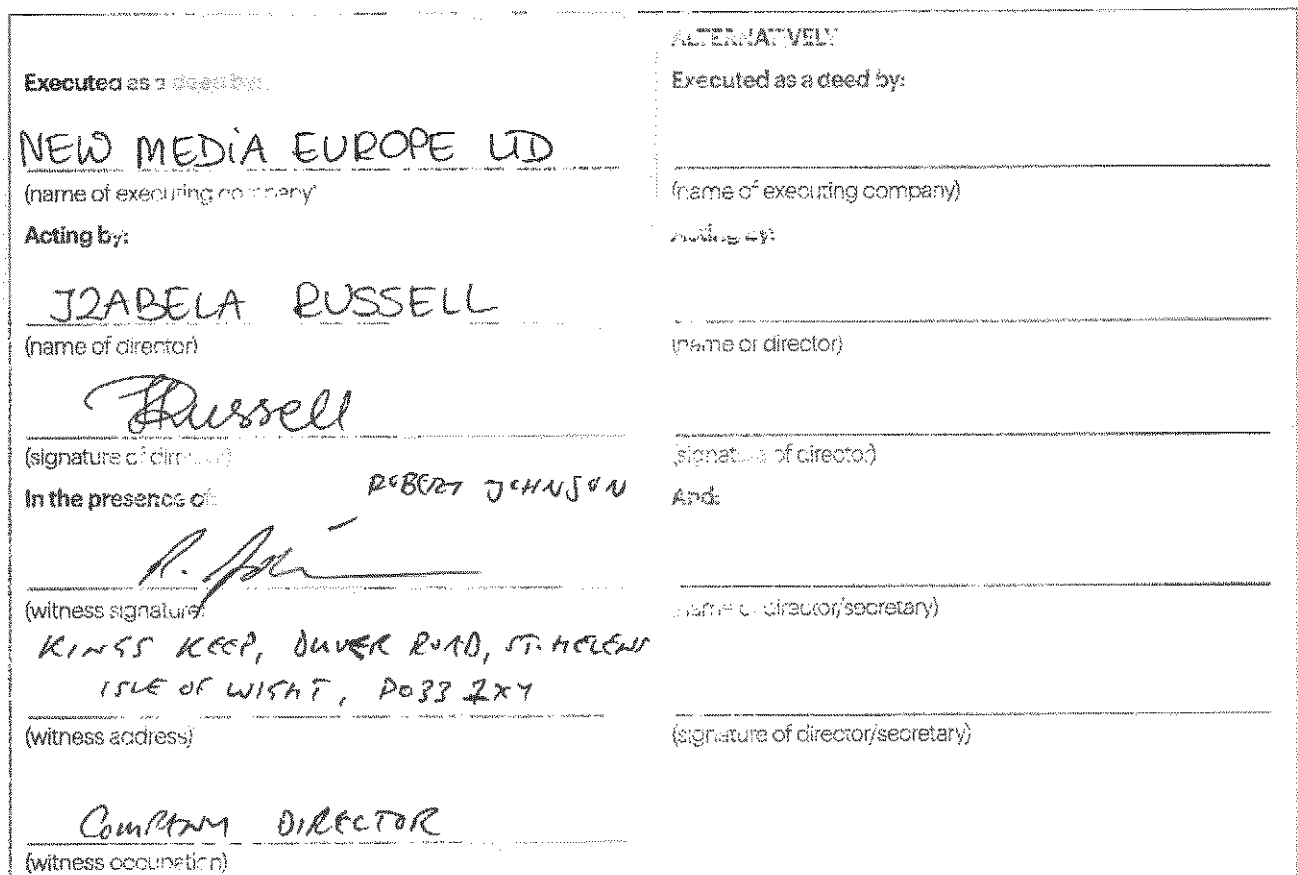 Executed as a deed by:
NEW MEDIA EUROPE LTD
(name of executing company)
Acting by:
IZABELA RUSSELL
(name of director)
Russell
(signature of director)
In the presence of:
ROBERT JOHNSON
R.
(witness signature)
KINGS KEEP, DUVER ROAD, ST. HELENS
ISLE OF WIGHT, PO33 1XY
(witness address)
COMPANY DIRECTOR
(witness occupation)
ALTERNATIVELY
Executed as a deed by:
(name of executing company)
Acting by:
(name of director)
(signature of director)
And:
(name of director/secretary)
(signature of director/secretary)